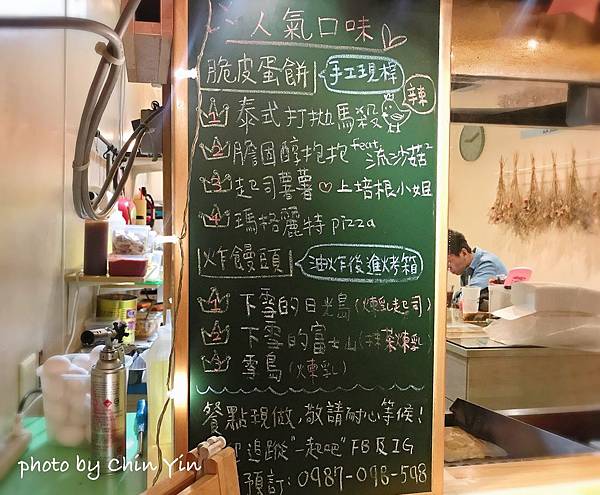 人氣口味
脆皮蛋餅 手工現桿
1 泰式打拋馬殺 辣
2 膽固醇抱抱 feat 流沙菇
3 起司薯薯♡上培根小姐
4 瑪格麗特 pizza
炸饅頭 油炸後進烤箱
1 下雪的日光島(煉乳起司)
2 下雪的富士山(抹茶煉乳)
3 雪島(煉乳)
餐點現做,敬請耐心等候!
追蹤"一起吧"FB及IG
預訂:0987-098-598
photo by Chin Yin